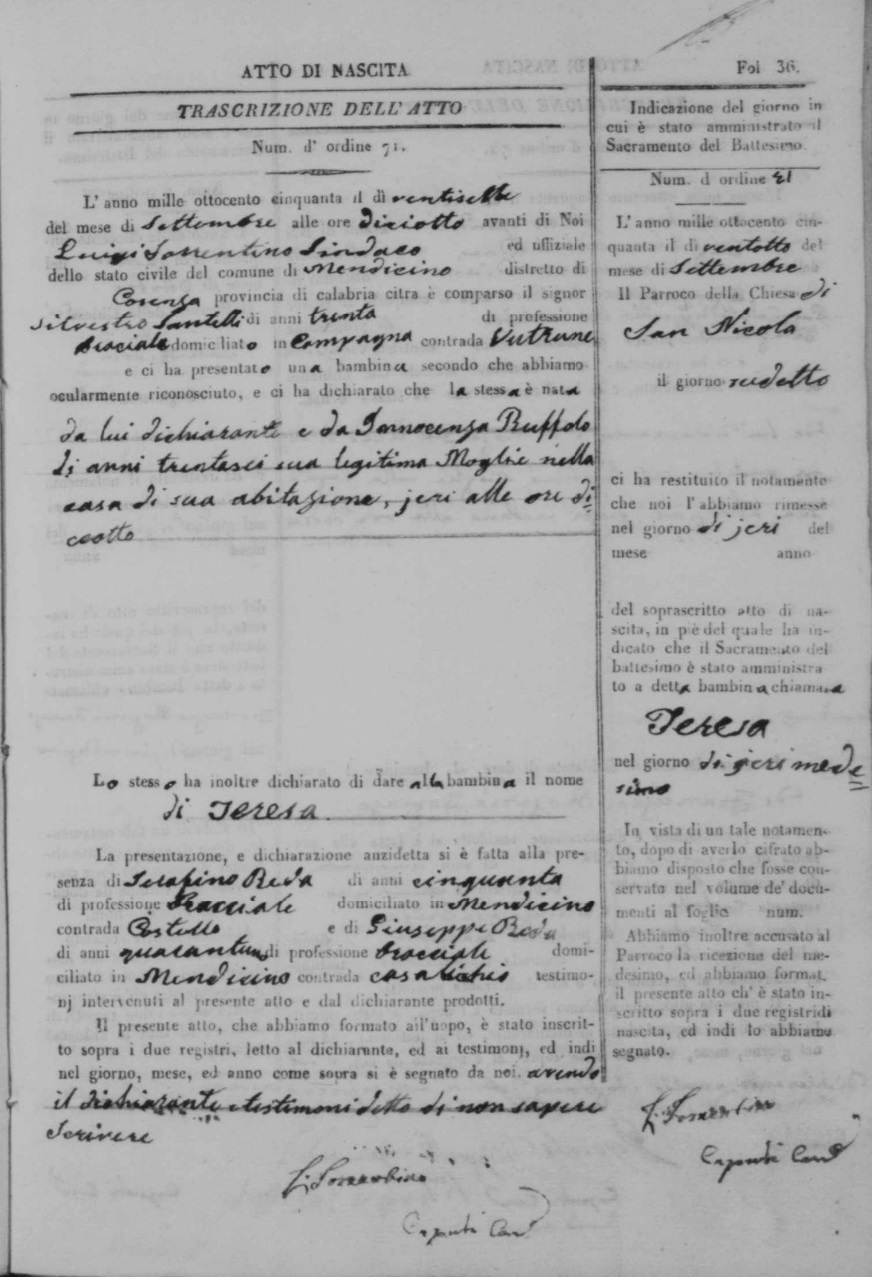 ATTO DI NASCITA
TRASCRIZIONE DELL'ATTO
Num. d'ordine 71.
L'anno mille ottocento cinquanta il dì ventisette
del mese di Settembre alle ore diciotto avanti di Noi
Luigi Sorrentino Sindaco ed uffiziale
dello stato civile del comune di Mendicino distretto di
Cosenza provincia di calabria citra è comparso il signor
Silvestro Santelli di anni trenta di professione
bracciale domiciliato in Campagna contrada
e ci ha presentato una bambina secondo che abbiamo
ocularmente riconosciuto, e ci ha dichiarato che la stessa è nata
da lui dichiarante e da Innocenza Ruffolo
di anni trentasei sua legitima Moglie nella
casa di sua abitazione, jeri alle ore di
ciotto
Lo stesso ha inoltre dichiarato di dare alla bambina il nome
di Teresa
La presentazione, e dichiarazione anzidetta si è fatta alla pre-
senza di Serafino Reda di anni cinquanta
di professione Bracciale domiciliato in Mendicino
contrada Castello e di Giuseppe Reda
di anni quarantuno di professione bracciale domi-
ciliato in Mendicino contrada testimo-
nj intervenuti al presente atto e dal dichiarante prodotti.
Il presente atto, che abbiamo formato all'uopo, è stato inscrit-
to sopra i due registri, letto al dichiarante, ed ai testimonj, ed indi
nel giorno, mese, ed anno come sopra si è segnato da noi. avendo
il dichiarante e testimoni detto di non sapere
scrivere
L. Sorrentino
Caputi Canc
Fol 36.
Indicazione del giorno in
cui è stato amministrato il
Sacramento del Battesimo.
Num. d ordine 71
L'anno mille ottocento cin-
quanta il dì ventotto del
mese di Settembre
Il Parroco della Chiesa di
San Nicola
il giorno sudetto
ci ha restituito il notamento
che noi l'abbiamo rimesse
nel giorno di jeri del
mese anno
del soprascritto atto di na-
scita, in piè del quale ha in-
dicato che il Sacramento del
battesimo è stato amministra
to a detta bambina chiamata
Teresa
nel giorno di jeri mede
simo
In vista di un tale notamen-
to, dopo di averlo cifrato ab-
biamo disposto che fosse con-
servato nel volume de' docu-
menti al foglio num.
Abbiamo inoltre accusato al
Parroco la ricezione del me-
desimo, ed abbiamo format.
il presente atto ch' è stato in-
scritto sopra i due registri di
nascita, ed indi lo abbiamo
segnato.
L. Sorrentino
Caputi Canc